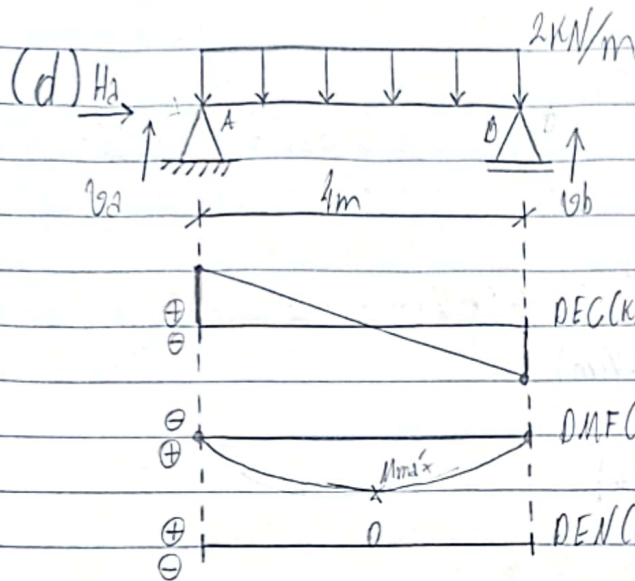 2KN/m
(d) Ha
A B
Va 4m Vb
⊕
⊖ DEC(K
⊖
⊕ DMF(
Mmáx
⊕ 0 DEN(
⊖